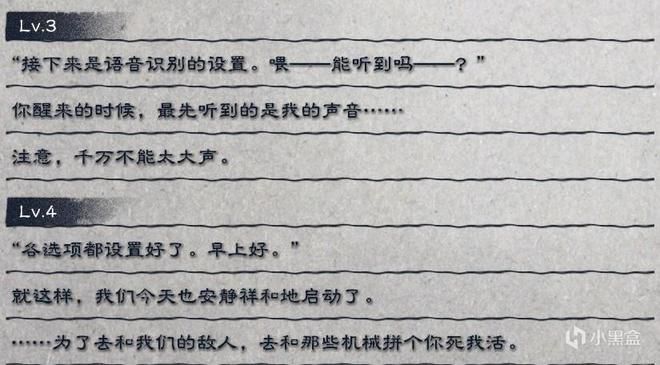 Lv.3
“接下来是语音识别的设置。喂——能听到吗——？”
你醒来的时候，最先听到的是我的声音……
注意，千万不能太大声。
Lv.4
“各选项都设置好了。早上好。”
就这样，我们今天也安静祥和地启动了。
……为了去和我们的敌人，去和那些机械拼个你死我活。
小黑盒